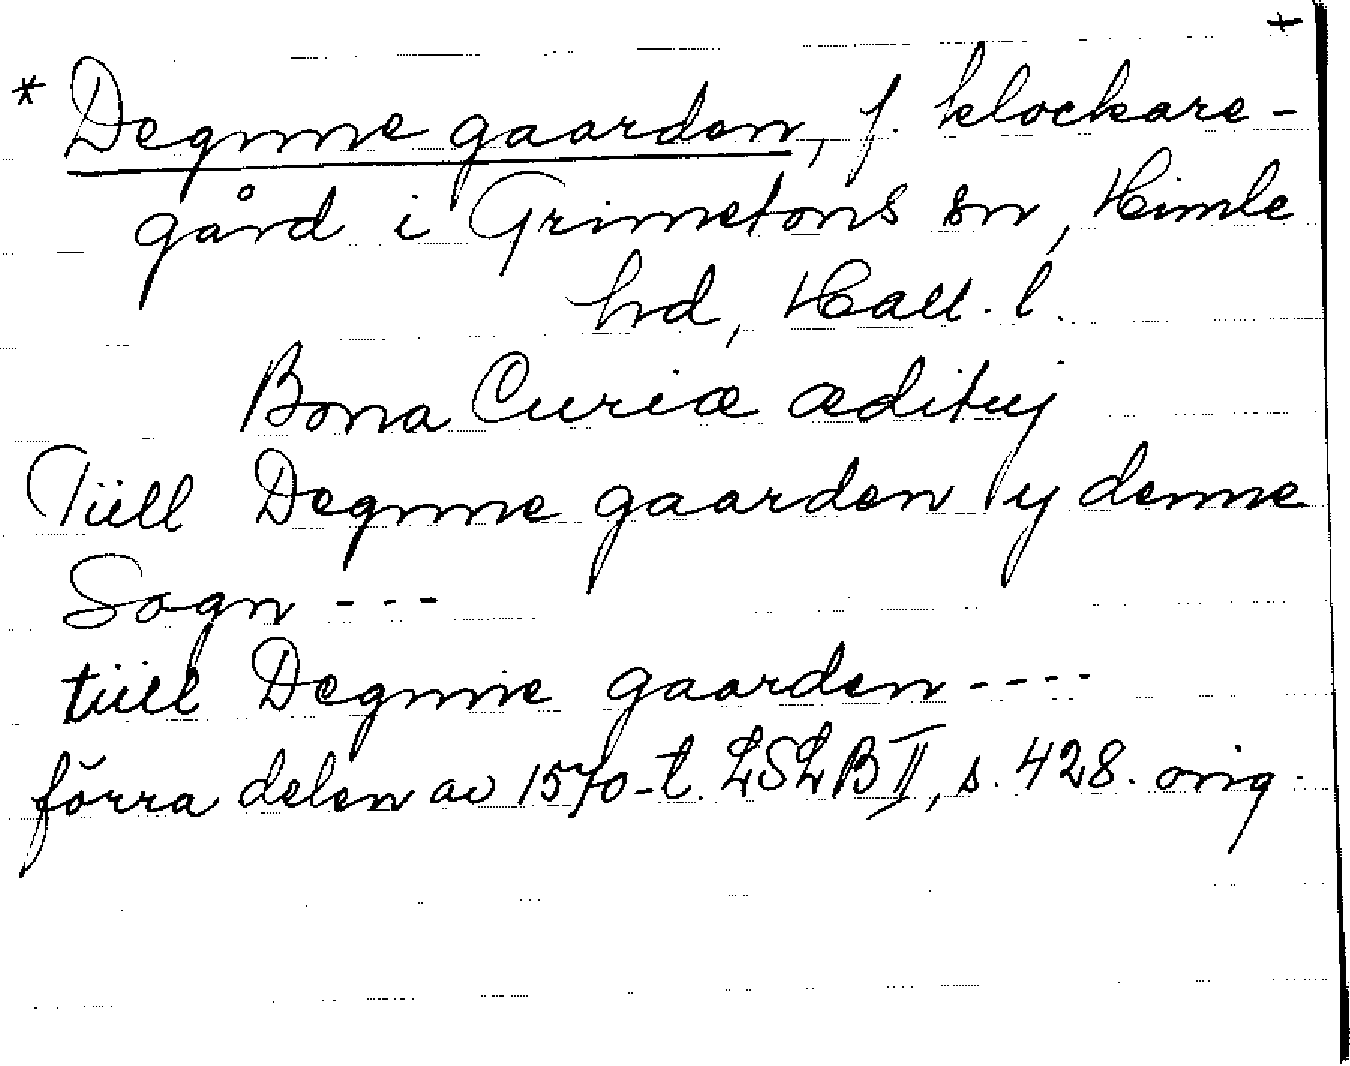 +
* Degnne gaarden, f. klockare-
gård i Grimetons sn, Himle
hrd, Hall. l.
Bona Curiæ æditij
Tiill Degnne gaarden y denne
Sogn ---
tiill Degnne gaarden ----
förra delen av 1570-t. LSLB II, s. 428. orig.